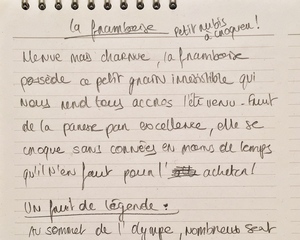 La framboise
petit rubis
à croquer !
Menue mais charnue, la framboise
possède ce petit grain irrésistible qui
nous rend tous accros l'été venu. Fruit
de la panère par excellence, elle se
croque sans compter en moins de temps
qu'il n'en faut pour l'acheter !
Un fruit de légende :
Au sommet de l'Olympe, nombreux sont